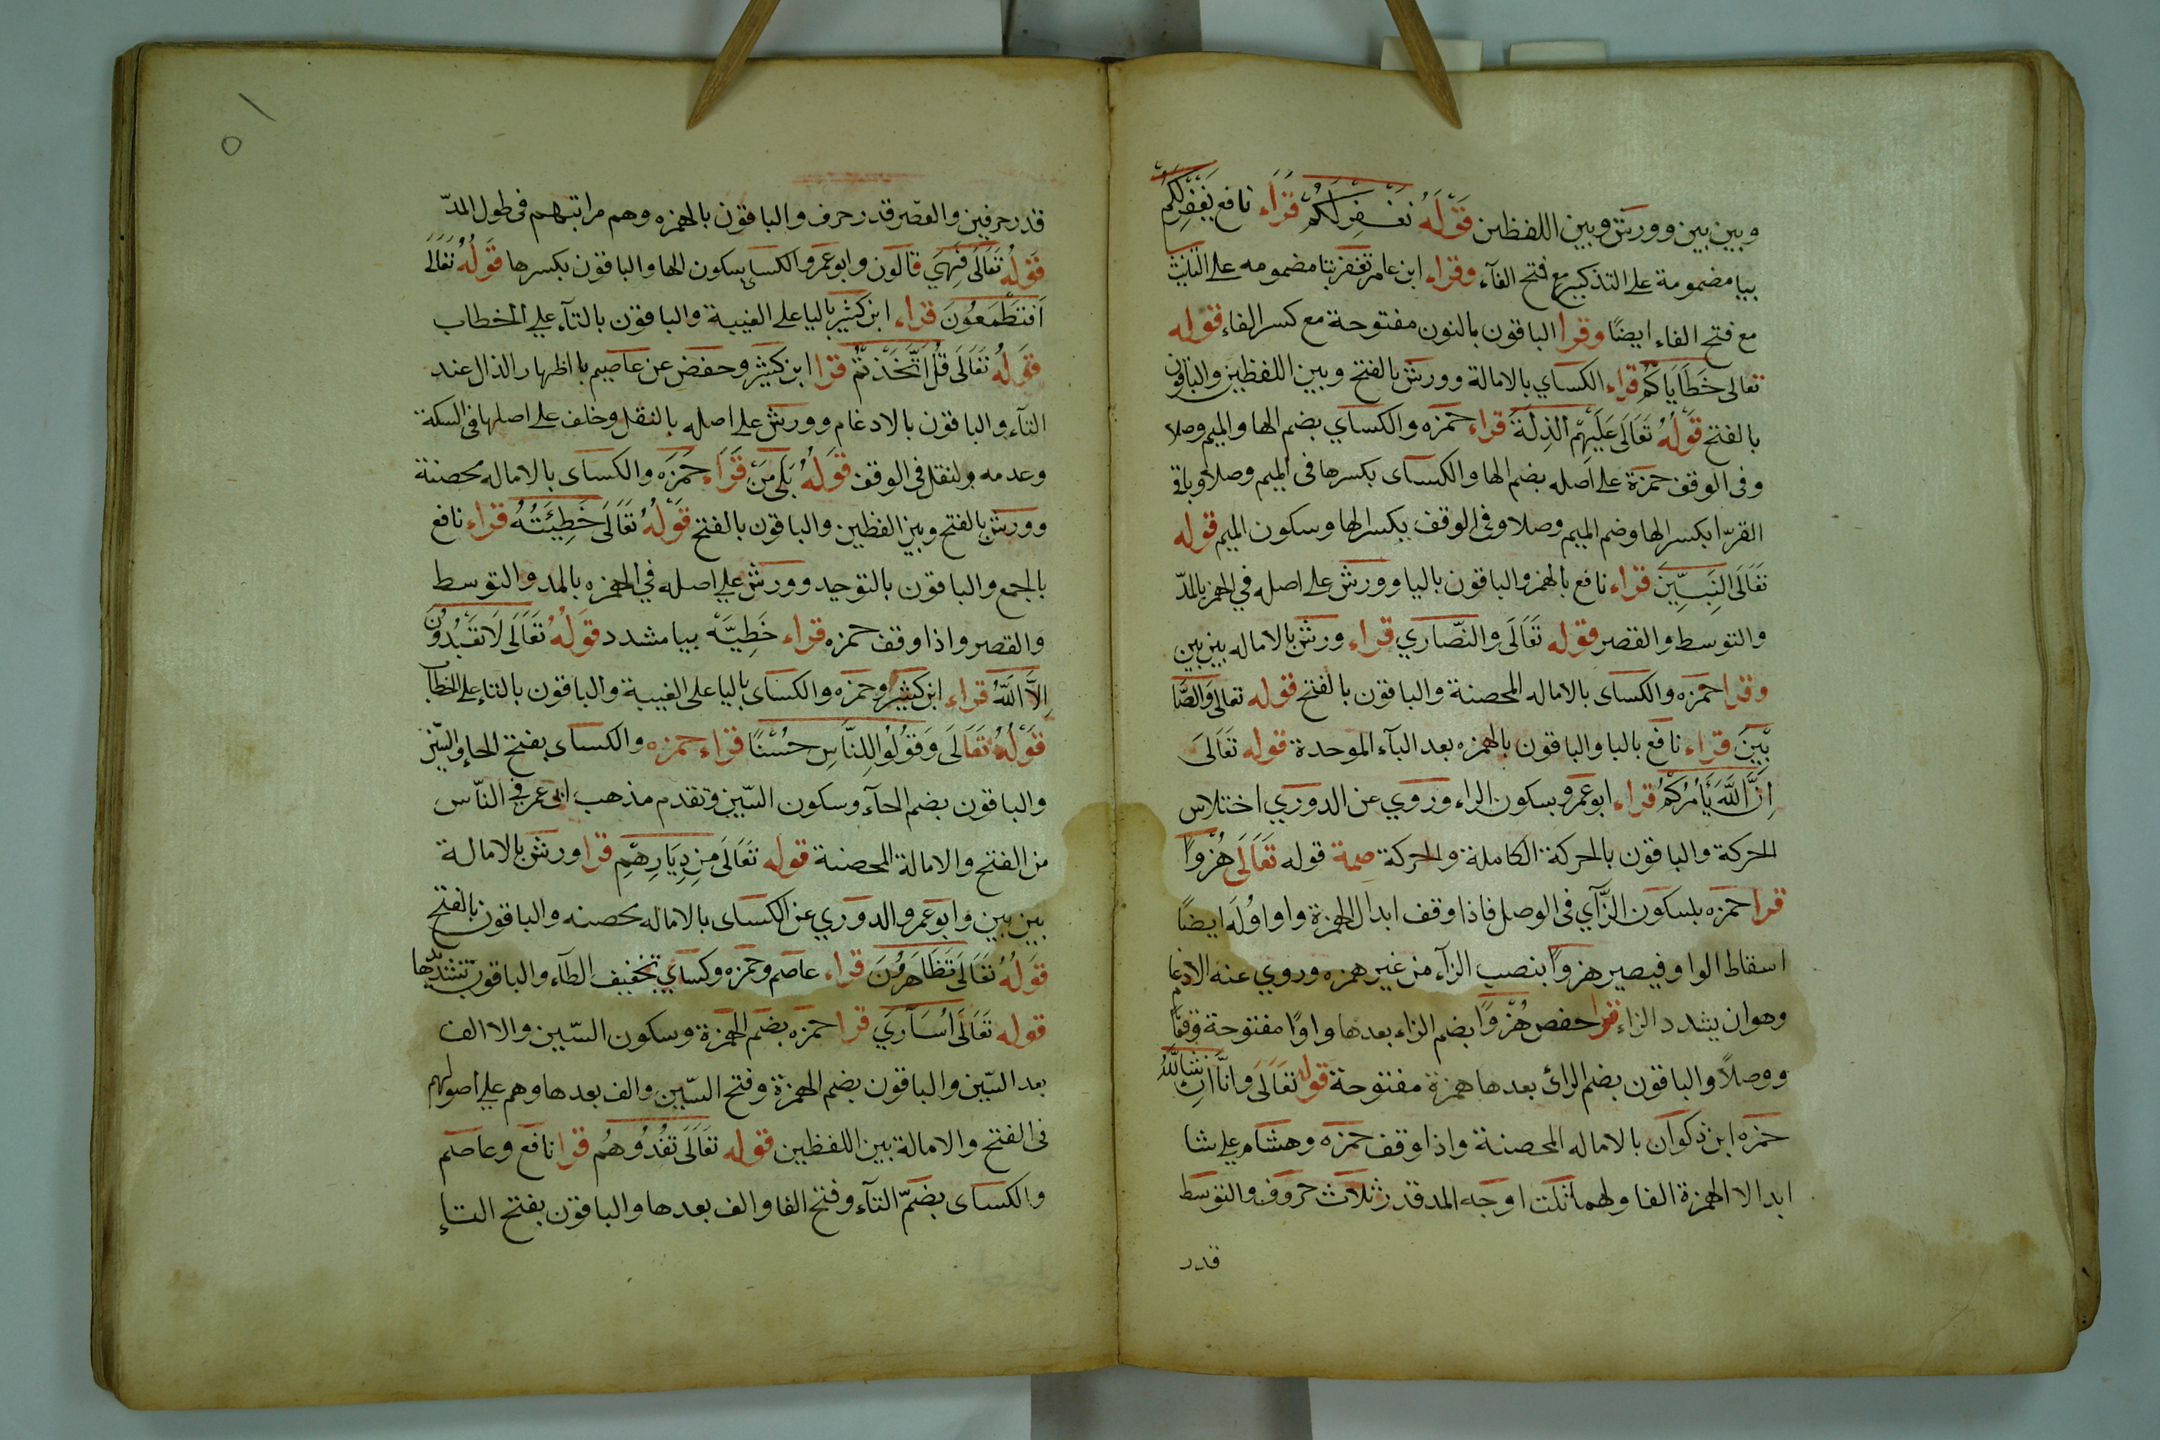 وبين بين وورش وبين اللفظين قَوْلَهُ نَغْفِرْ لَكُمْ قَرَاَء نافع يُغْفَرْلَكُمْ
بيا مضمومة على التذكير مع فتح الفآء وقراء ابن عامر تغفر بتا مضمومه على التانيث
مع فتح الفاء ايضًا وقرا الباقون بالنون مفتوحة مع كسر الفاء قوله
تعالى خَطَايَاكُمْ قراء الكساي بالامالة وورش بالفتح وبين اللفظين والباقون
بالفتح قَوْلُهُ تَعَالَى عَلَيْهِم الذِلَةَ قراء حمزه والكساي بضم الها والميم وصلا
وفى الوقف حمزة على اصله بضم الها والكساى بكسرها فى الميم وصلا وباقي
القرّا بكسر الها وضم الميم وصلا وفى الوقف بكسر الها وسكون الميم قوله
تَعَالَى النَبِيِّينَ قراء نافع بالهمز والباقون باليا وورش على اصله في الهمز بالمدّ
والتوسط والقصر قوله تَعَالَى والنّصَارى قراء ورش بالاماله بين بين
وقرا حمزه والكساى بالاماله المحضنة والباقون بالفتح قوله تعالى وَالصَّا
بِيِّنَ قراء نافع باليا والباقون بالهمزه بعد البآء الموحدة قوله تَعَالىَ
اِنَّ اللَّهَ يَاْمُرُكُمْ قراء ابو عمرو بسكون الراء وروي عن الدوري اختلاس
الحركة والباقون بالحركة الكاملة والحركة صمة قوله تَعَالَى هُزُواً
قرا حمزه بلسكون الزّآي فى الوصل فاذا وقف ابدال الهمزة واوا وُلَه ايضًا
اسقاط الواو فيصير هزواً بنصب الزآء من غير همزه وروي عنه الادغام
وهو ان يشدد الزاء قرا حفص هُزْوًا بضم الزاء بعدها واوًا مفتوحة وقفًا
ووصلاً والباقون بضم الزائ بعدها همزة مفتوحة قوله تَعَالَى وانَّا اِنْ شَاَللَّهُ
حمزه ابن ذكوان بالاماله المحضنة واذا وقف حمزه وهشام على شا
ابدالا الهمزة الفا ولهما ثلث اوجه المد قدر ثلاث حروف والتوسط
قدر
قدر حرفين والقصر قدر حرف والباقون بالهمزه وهم مراتبهم فى طول المدّ
قَوْلُهُ تَعَالَى فَهِيَ قالون وابو عمر والكساي بسكون الها والباقون بكسرها قَوْلُهُ تَعَالَى
اَفَتَطْمَعُونَ قراء ابن كثير باليا على الغيبة والباقون بالتآء على الخطاب
قَوْلُهُ تَعَالَى قُلْ اَتَّخَذْتُمْ قرا ابن كثير وحفص عن عاصيم باظهار الذال عند
التآء والباقون بالادغام وورش على اصله بالنقل وخلف على اصلها فى السكتة
وعدمه ولنقل فى الوقف قَوْلُهُ بَلَى مَنْ قَرَاَء حمزه والكساى بالاماله محضنة
وورش بالفتح وبين الفظين والباقون بالفتح قَوْلُهُ تَعَالَى خَطِيْئَتُهُ قراء نافع
بالجمع والباقون بالتوحيد وورش على اصله في الهمزه بالمد والتوسط
والقصر واذا وقف حمزه قراء خَطِيَّه بيا مشدد قَوْلَهُ تَعَالَى لَا تَعْبُدُوْنَ
اِلَّا اللَّهَ قراء ابن كثير وحمزه والكساى باليا على الغيبة والباقون بالتاء على الخطآ
قَوْلُهُ تَعَالَى وَقُوْلُوْا لِلنَّاسِ حُسْنًا قراء حمزه والكساى بفتح الحاء والسّين
والباقون بضم الحآء وسكون السّين وتقدم مذهب ابى عمر في النّاس
من الفتح والامالة المحضنة قوله تَعَالَى مِنْ دِيَارِهِمْ قرا ورش بالامالة
بين بين وابو عمرو الدوري عن الكساى بالاماله محضنه والباقون بالفتح
قَوْلُهُ تَعَالَى تَظَاهَرُوْنَ قراء عاصم وحمزه وكساي بتخفيف الظآء والباقون بتشديدها
قوله تَعَالَى اُسَآرَي قرا حمزه بضم الهمزة وسكون السّين والا الف
بعد السّين والباقون بضم الهمزة وفتح السّين والف بعدها وهم على اصولهم
فى الفتح والامالة بين اللفظين قوله تَعَالَى تفُدُوهُم قرا نافع وعاصم
والكساى بضَمّ التآء وفتح الفا والف بعدها والباقون بفتح التاء